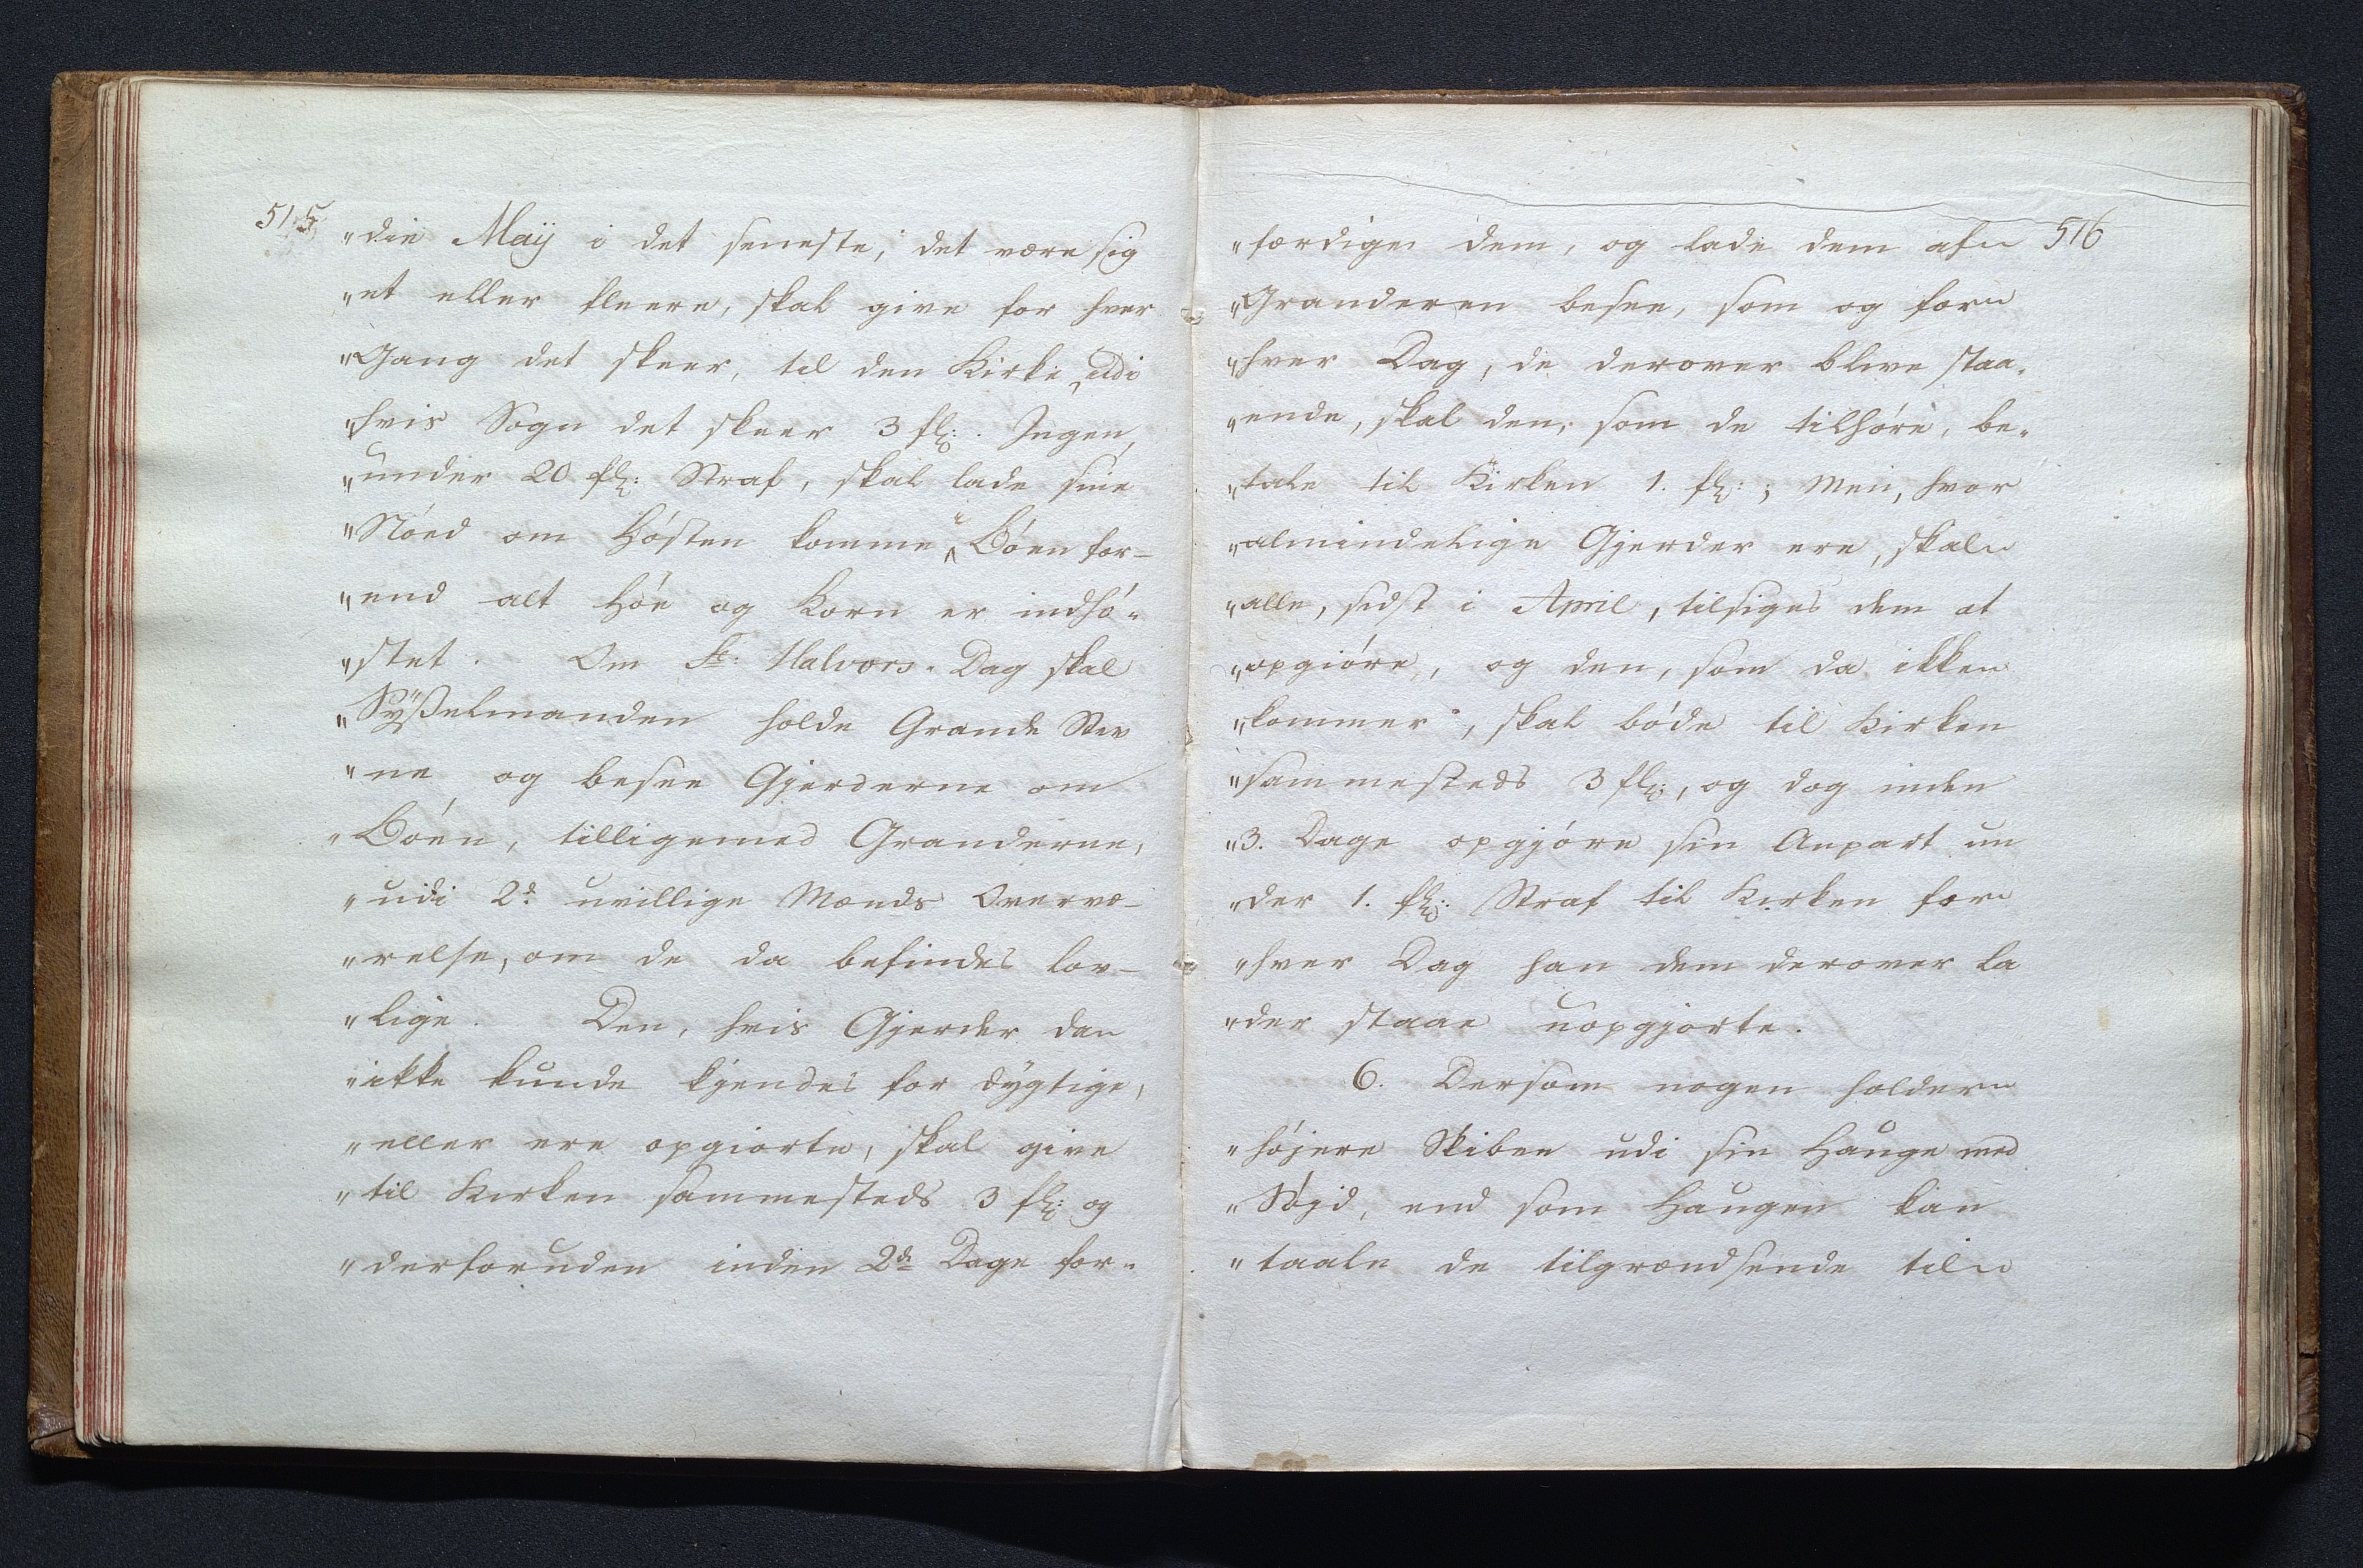 515
"die Maÿ i det seneste, det være sig
"et eller fleere, skal give for hver
"Gang det skeer, til den Kirke, udi
"hvis Sogn det skeer 3 fl:. Ingen,
"under 20 fl: Straf, skal lade sine
"Nöed om Hósten komme i Böen for-
"end alt Hóe og Korn er indhö-
"stet. Om St: Halvors-Dag skal
"Sÿßelmanden holde Grande Stev
"ne, og besee Gjerderne om
"Böen, tilligemed Granderne,
"udi 2de uvillige Mænds Overvæ-
"relse, om de da befindes lov-
"lige. Den, hvis Gjerder da
"ikke kunde kjendes for dygtige,
"eller ere opgiorte, skal give
"til Kirken sammesteds 3 fl: og
"derforuden inden 2de Dage for-
516
"færdige dem, og lade dem af
"Granderen besee, som og for
"hver Dag, de derover blive staa-
"ende, skal den, som de tilhöre, be-
"tale til Kirken 1. fl:; Men, hvor
"almindelige Gjerder ere, skal
"alle, sidst i April, tilsiges dem at
"opgiöre, og den, som da ikke
"kommer, skal böde til Kirken
"sammesteds 3 fl:, og dog inden
"3. Dage opgjöre sin Anpart un
"der 1. fl: Straf til Kirken for
"hver Dag han dem derover la
"der staae uopgjorte.
6. Dersom nogen holder
"höjere Skiben udi sin Hauge med
"Nöjd, end som Haugen kan
"taale de tilgrændsende til